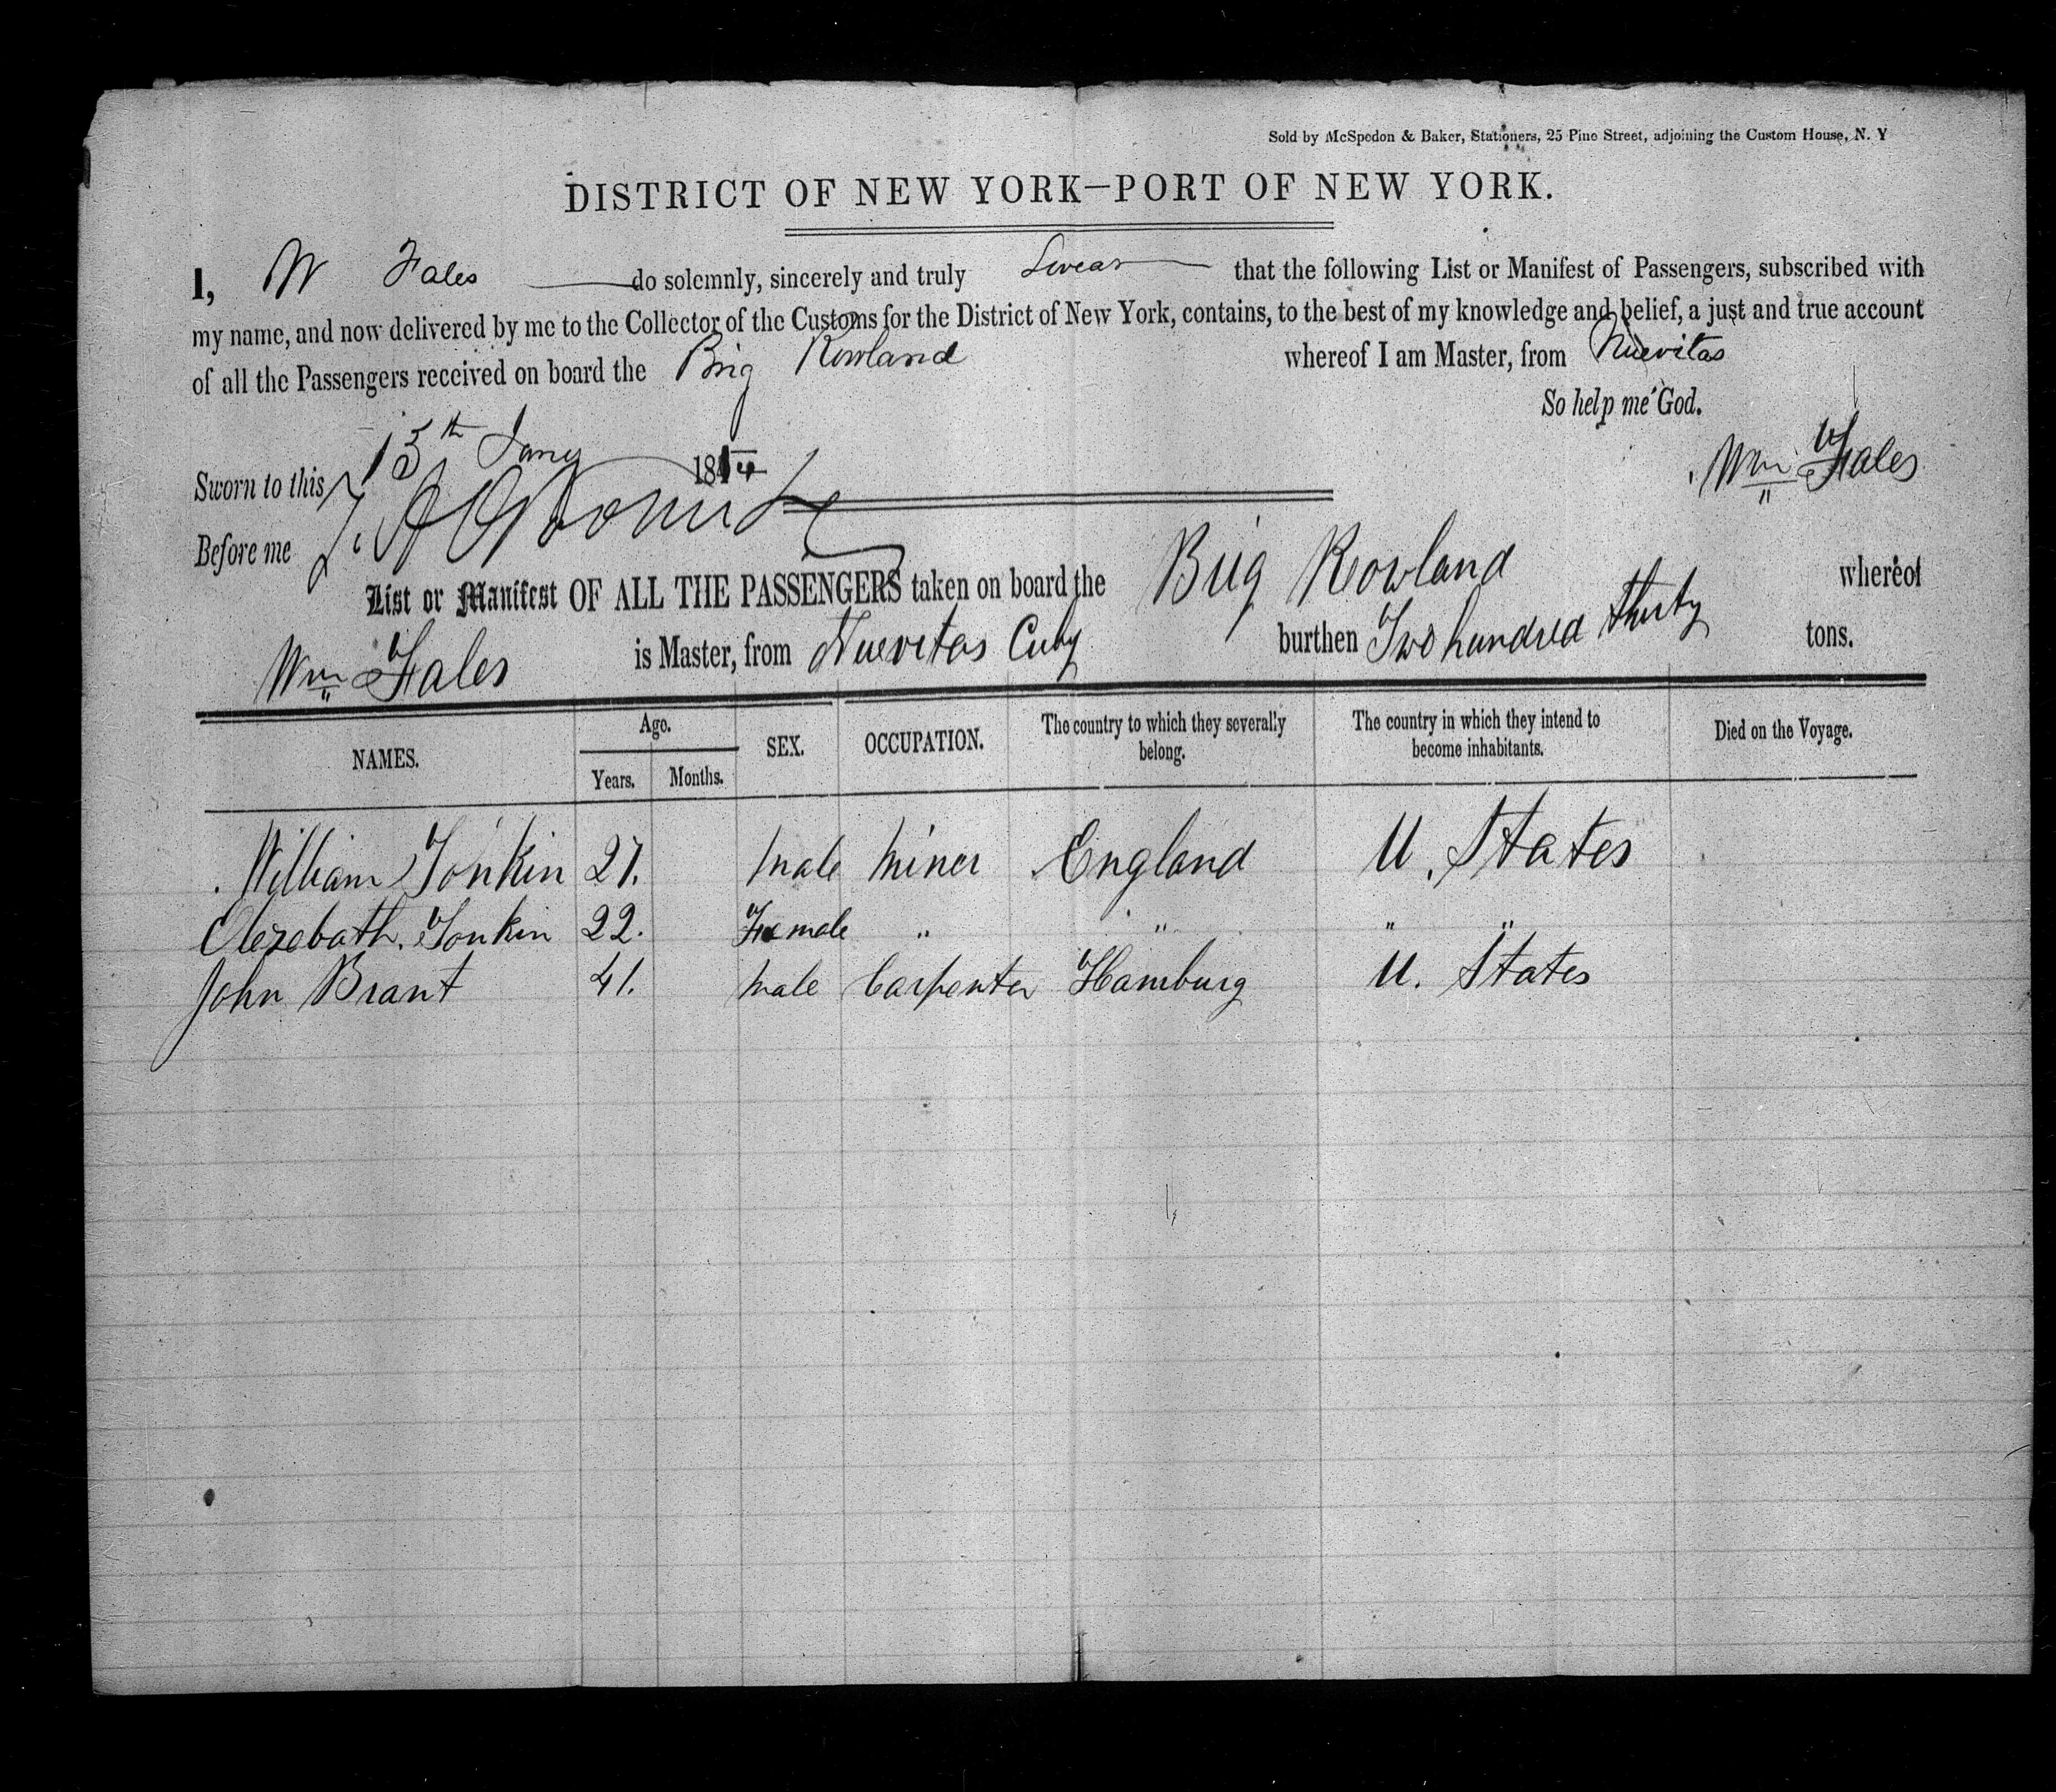 Sold by McSpedon & Baker, Stationers, 25 Pine Street, adjoining the Custom House, N. Y
DISTRICT OF NEW YORK—PORT OF NEW YORK.
I, W Fales do solemnly, sincerely and truly Swear that the following List or Manifest of Passengers, subscribed with
my name, and now delivered by me to the Collector of the Customs for the District of New York, contains, to the best of my knowledge and belief, a just and true account
of all the Passengers received on board the Brig Rowland whereof I am Master, from Nuevitas
So help me God.
Sworn to this 15th Jany 184
Wm Fales
Before me
List or Manifest OF ALL THE PASSENGERS taken on board the Brig Rowland whereof
Wm Fales is Master, from Nuevitas Cuby burthen Two hundred thirty tons.
NAMES. Age. Years. Months. SEX. OCCUPATION. The country to which they severally belong. The country in which they intend to become inhabitants. Died on the Voyage.
William Tonkin 27. male miner England U. States
Elezebath. Tonkin 22. Female " " " "
John Brant 41. male Carpenter Hamburg U. States